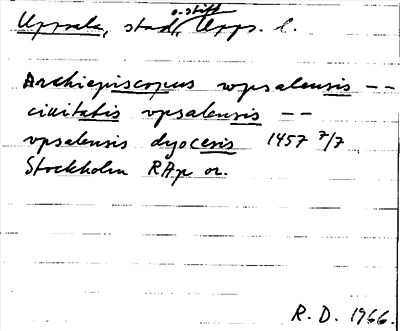 Uppsala, stad, o. stift Upps. l.
Archiepiscopus wpsalensis --
ciuitatis vpsalensis --
vpsalensis dyocesis 1457 7/7
Stockholm RAp or.
R. D. 1966.